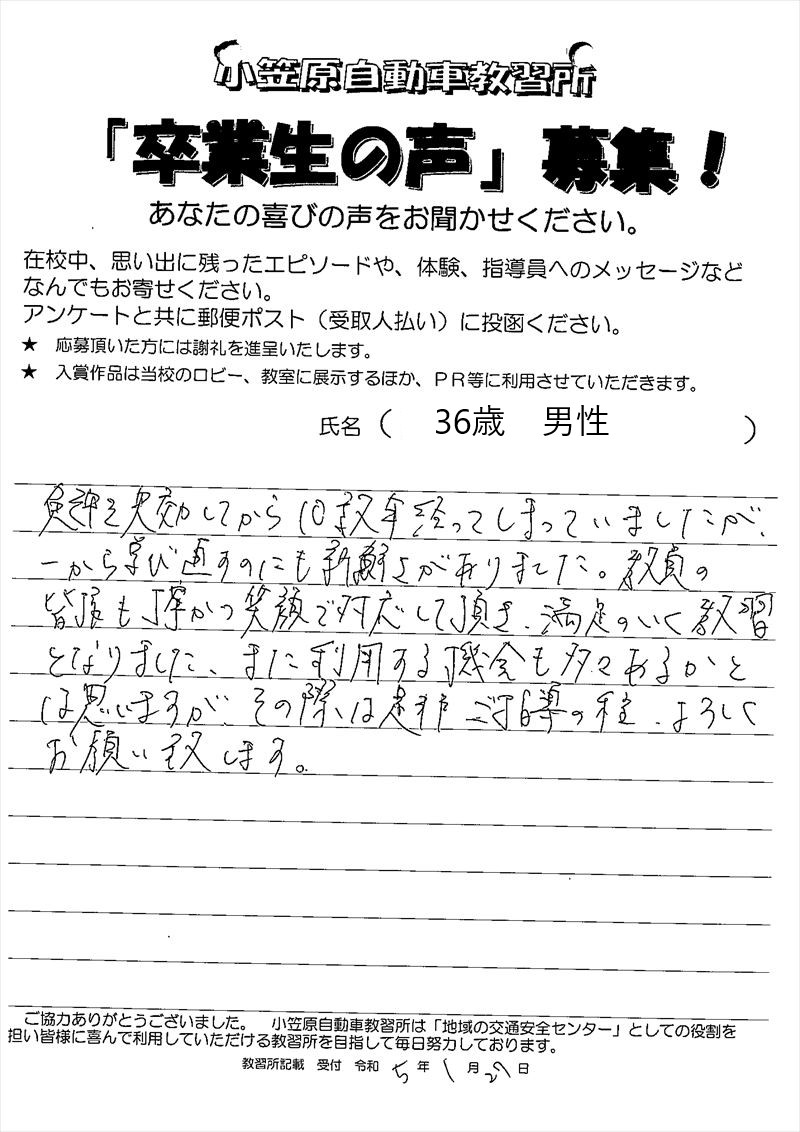 小笠原自動車教習所
「卒業生の声」募集！
あなたの喜びの声をお聞かせください。
在校中、思い出に残ったエピソードや、体験、指導員へのメッセージなど
なんでもお寄せください。
アンケートと共に郵便ポスト（受取人払い）に投函ください。
★ 応募頂いた方には謝礼を進呈いたします。
★ 入賞作品は当校のロビー、教室に展示するほか、ＰＲ等に利用させていただきます。
氏名（ 36歳 男性 ）
免許を失効してから10数年経ってしまっていましたが、
一から学び直すのにも新鮮さがありました。教員の
皆様も丁寧かつ笑顔で対応して頂き、満足のいく教習
となりました、また利用する機会も多々あるかと
は思いますが、その際は是非ご指導の程、よろしく
お願い致します。
ご協力ありがとうございました。 小笠原自動車教習所は「地域の交通安全センター」としての役割を
担い皆様に喜んで利用していただける教習所を目指して毎日努力しております。
教習所記載 受付 令和 5年 1月 29日